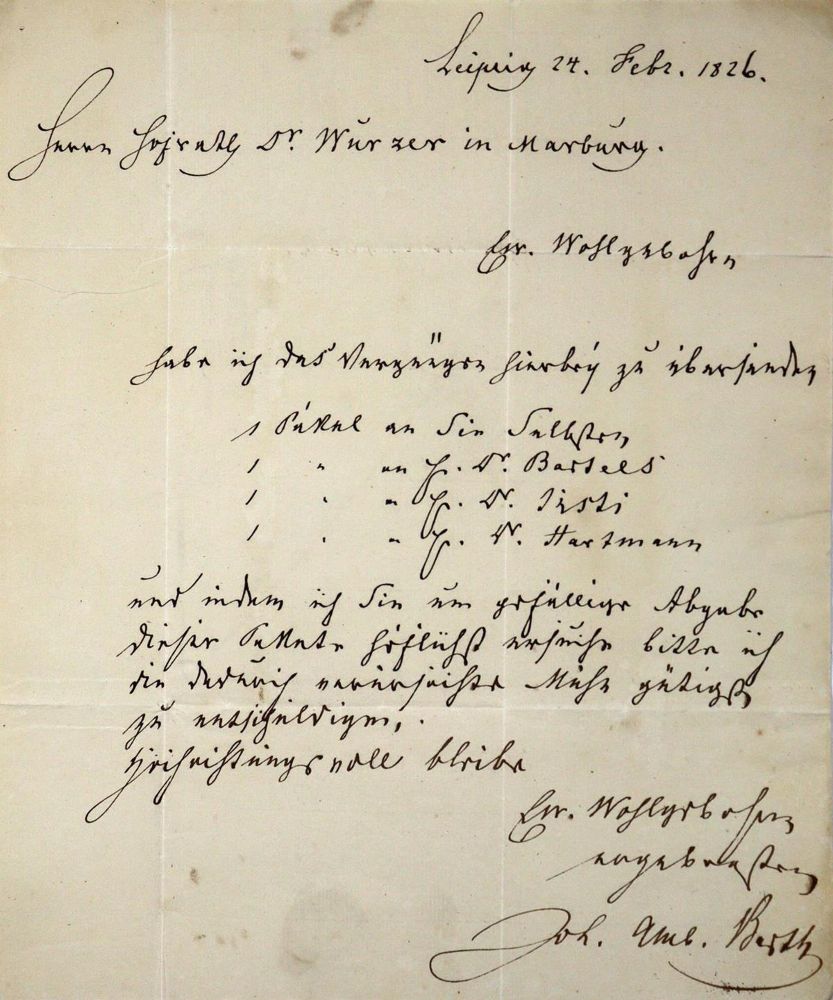 Leipzig 24. Febr. 1826.
Herrn Hofrath Dr. Wurzer in Marburg.
Ew. Wohlgebohrn
habe ich das Vergnügen hierbey zu übersenden
1 Paket an Sie Selbsten
1 " an H. Dr. Bartels
1 " " H. Dr. Justi
1 " " H. Dr. Hartmann
und indem ich Sie um gefällige Abgabe
dieser Pakete höflichst ersuche bitte ich
die dadurch verursachte Mühe gütigst
zu entschuldigen,.
Hochachtungsvoll bleibe
Ew. Wohlgebohrn
ergebensten
Joh. Amb. Barth